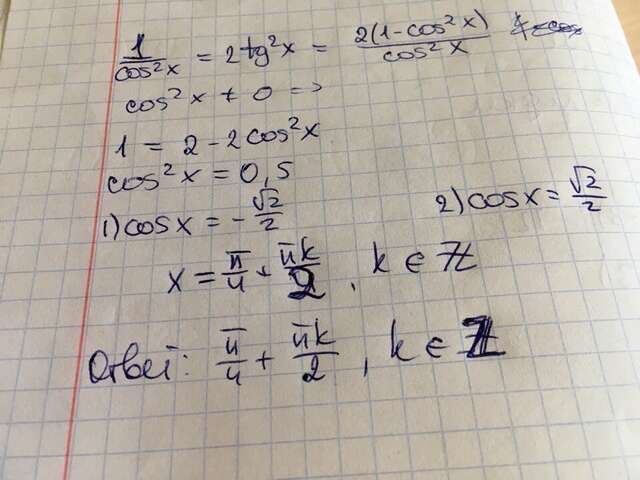 1/cos²x = 2tg²x = 2(1-cos²x)/cos²x
cos²x ≠ 0 =>
1 = 2 - 2cos²x
cos²x = 0,5
1) cosx = -√2/2 2) cosx = √2/2
x = π/4 + πk/2, k ∈ ℤ
Ответ: π/4 + πk/2, k ∈ ℤ